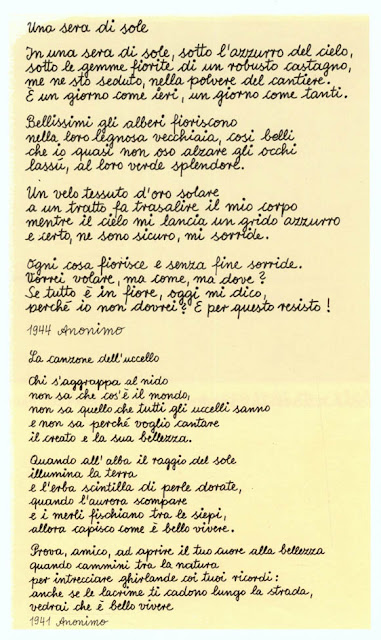 Una sera di sole
In una sera di sole, sotto l'azzurro del cielo,
sotto le gemme fiorite di un robusto castagno,
me ne sto seduto, nella polvere del cantiere.
È un giorno come ieri, un giorno come tanti.
Bellissimi gli alberi fioriscono
nella loro legnosa vecchiaia, così belli
che io quasi non oso alzare gli occhi
lassù, al loro verde splendore.
Un velo tessuto d'oro solare
a un tratto fa trasalire il mio corpo
mentre il cielo mi lancia un grido azzurro
e certo, ne sono sicuro, mi sorride.
Ogni cosa fiorisce e senza fine sorride.
Vorrei volare, ma come, ma dove?
Se tutto è in fiore, oggi mi dico,
perché io non dovrei? E per questo resisto!
1944 Anonimo
La canzone dell'uccello
Chi s'aggrappa al nido
non sa che cos'è il mondo,
non sa quello che tutti gli uccelli sanno
e non sa perché voglio cantare
il creato e la sua bellezza.
Quando all'alba il raggio del sole
illumina la terra
e l'erba scintilla di perle dorate,
quando l'aurora scompare
e i merli fischiano tra le siepi,
allora capisco come è bello vivere.
Prova, amico, ad aprire il tuo cuore alla bellezza
quando cammini tra la natura
per intrecciare ghirlande coi tuoi ricordi:
anche se le lacrime ti cadono lungo la strada,
vedrai che è bello vivere
1941 Anonimo